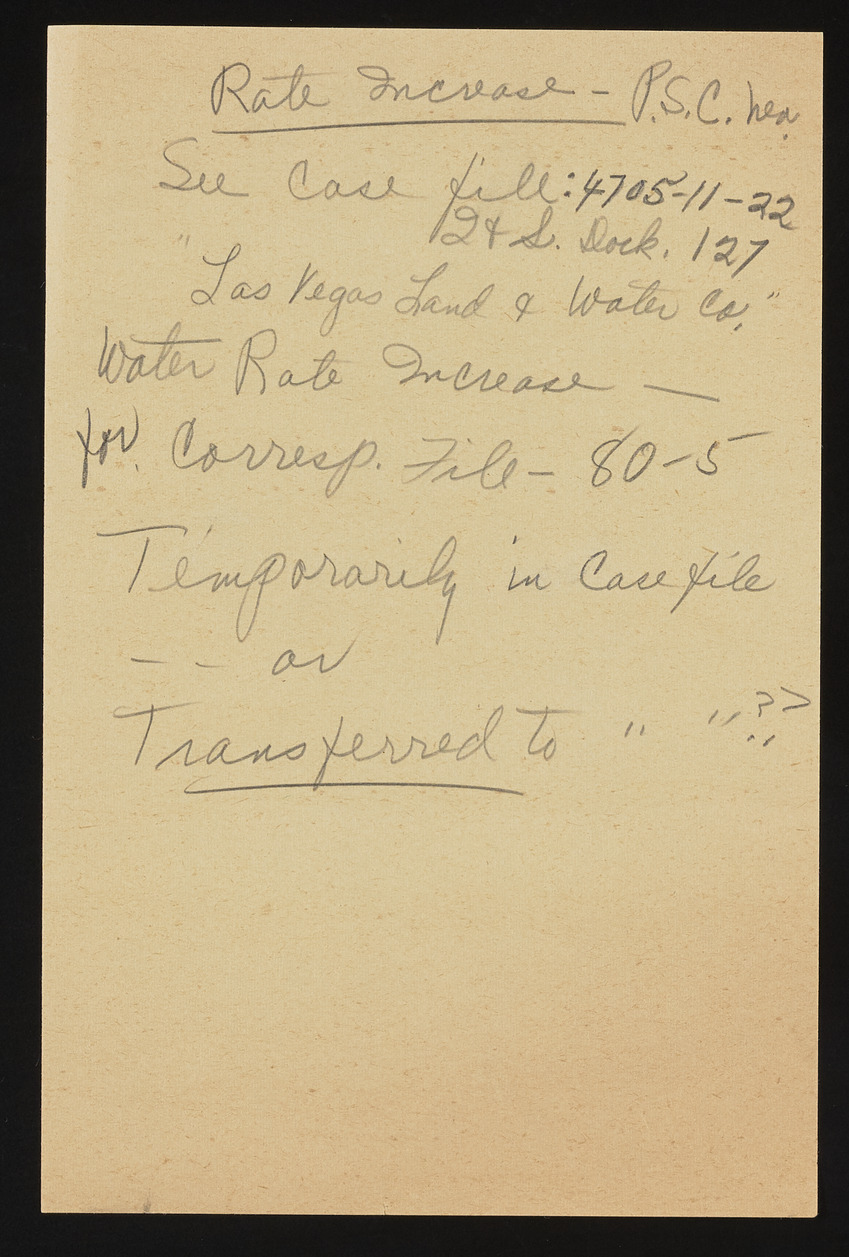 Rate Increase - P.S.C. Nev.
See Case file: 4705-11-22
I & S. Dock. 127
"Las Vegas Land & Water Co."
Water Rate Increase —
for. Corresp. File - 80-5
Temporarily in Case file
- - or
Transferred to " " ??